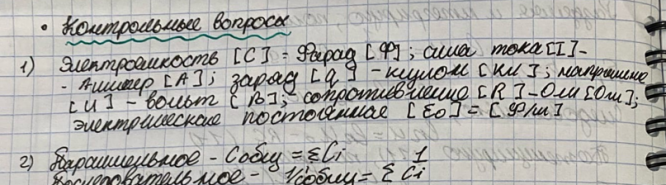 • Контрольные вопросы
1) Электроемкость [C] = Фарад [Ф]; сила тока [I] -
- Ампер [A]; заряд [q] - кулон [Кл]; напряжение
[U] - вольт [В]; сопротивление [R] - Ом [Ом];
электрическая постоянная [ε0] = [Ф/м]
2) Параллельное - Cобщ = ΣCi
Последовательное - 1/Cобщ = Σ 1/Ci